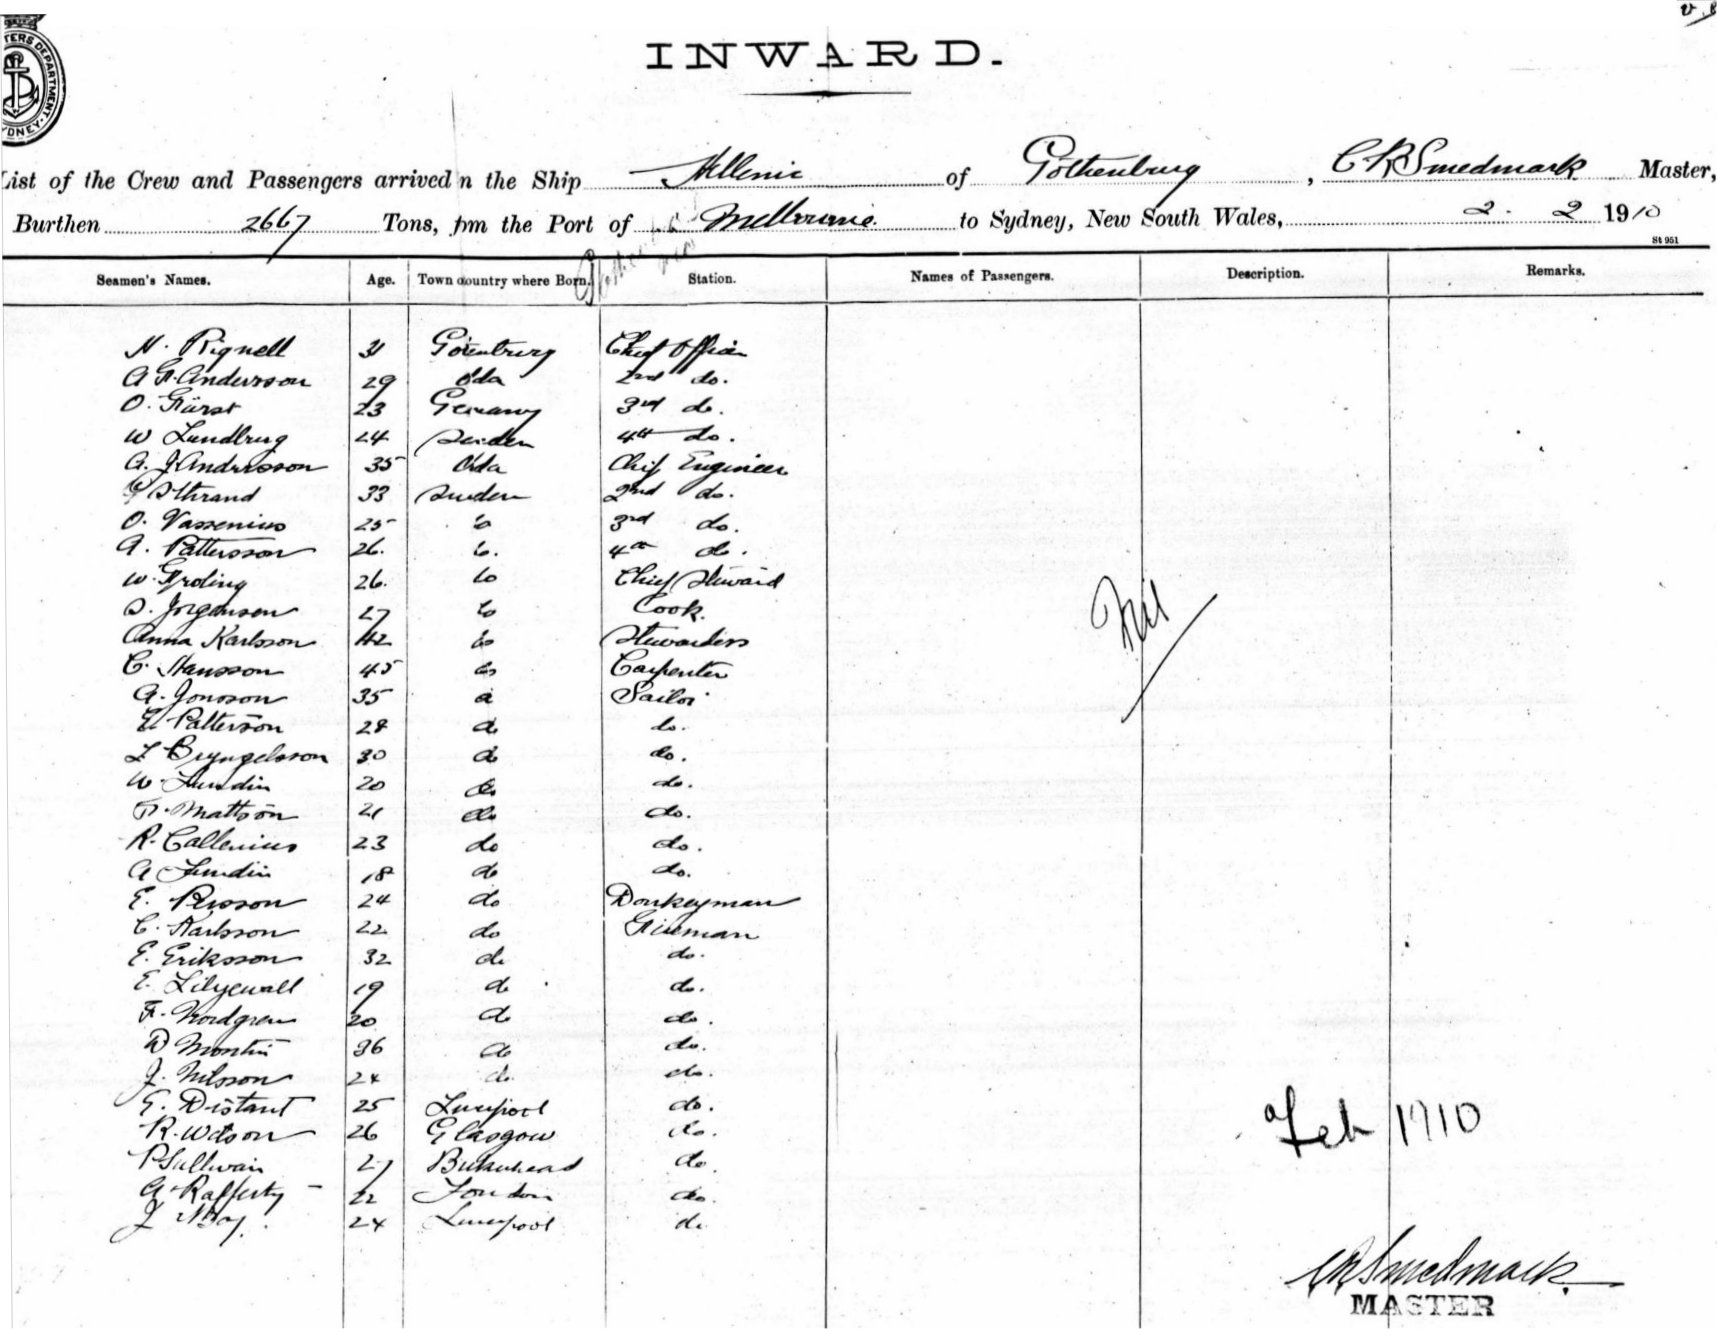 INWARD.
List of the Crew and Passengers arrived n the Ship Hellenic of Gothenburg, C R Smedmark Master,
Burthen 2667 Tons, from the Port of Melbourne to Sydney, New South Wales, 2. 2 1910
St 951
Seamen's Names. Age. Town country where Born. Station. Names of Passengers. Description. Remarks.
N. Rignell 31 Gotenburg Chief Officer
A F. Andersson 29 2nd do.
O. Fürst 23 Germany 3rd do.
W Lundberg 24 Sweden 4th do.
A. J Andersson 35 Chief Engineer
Sthrand 33 Sweden 2nd do.
O. Vassenius 25 do 3rd do.
A. Pattersson 26. do. 4th do.
W. Froding 26. do Chief Steward
S. Jorgensen 27 do Cook.
Anna Karlsson 42 do Stewardess
C. Hansson 45 do Carpenter
A. Jonsson 35 do Sailor
E Patterson 28 do do.
L Bryngelsson 30 do do.
W Lundin 20 do do.
F. Mattson 21 do do.
R. Callenius 23 do do.
A Lundin 18 do do.
E. Persson 24 do Donkeyman
C. Karlsson 22 do Fireman
E. Eriksson 32 do do.
E. Lilyewall 19 do do.
F. Nordgren 20 do do.
D Montin 36 do do.
J. Nilsson 24 do do.
G. Distant 25 Liverpool do.
R. Watson 26 Glasgow do.
P Sullivan 27 Birkenhead do.
A Rafferty 22 London do.
J May. 24 Liverpool do
Nil
Feb 1910
CR Smedmark
MASTER